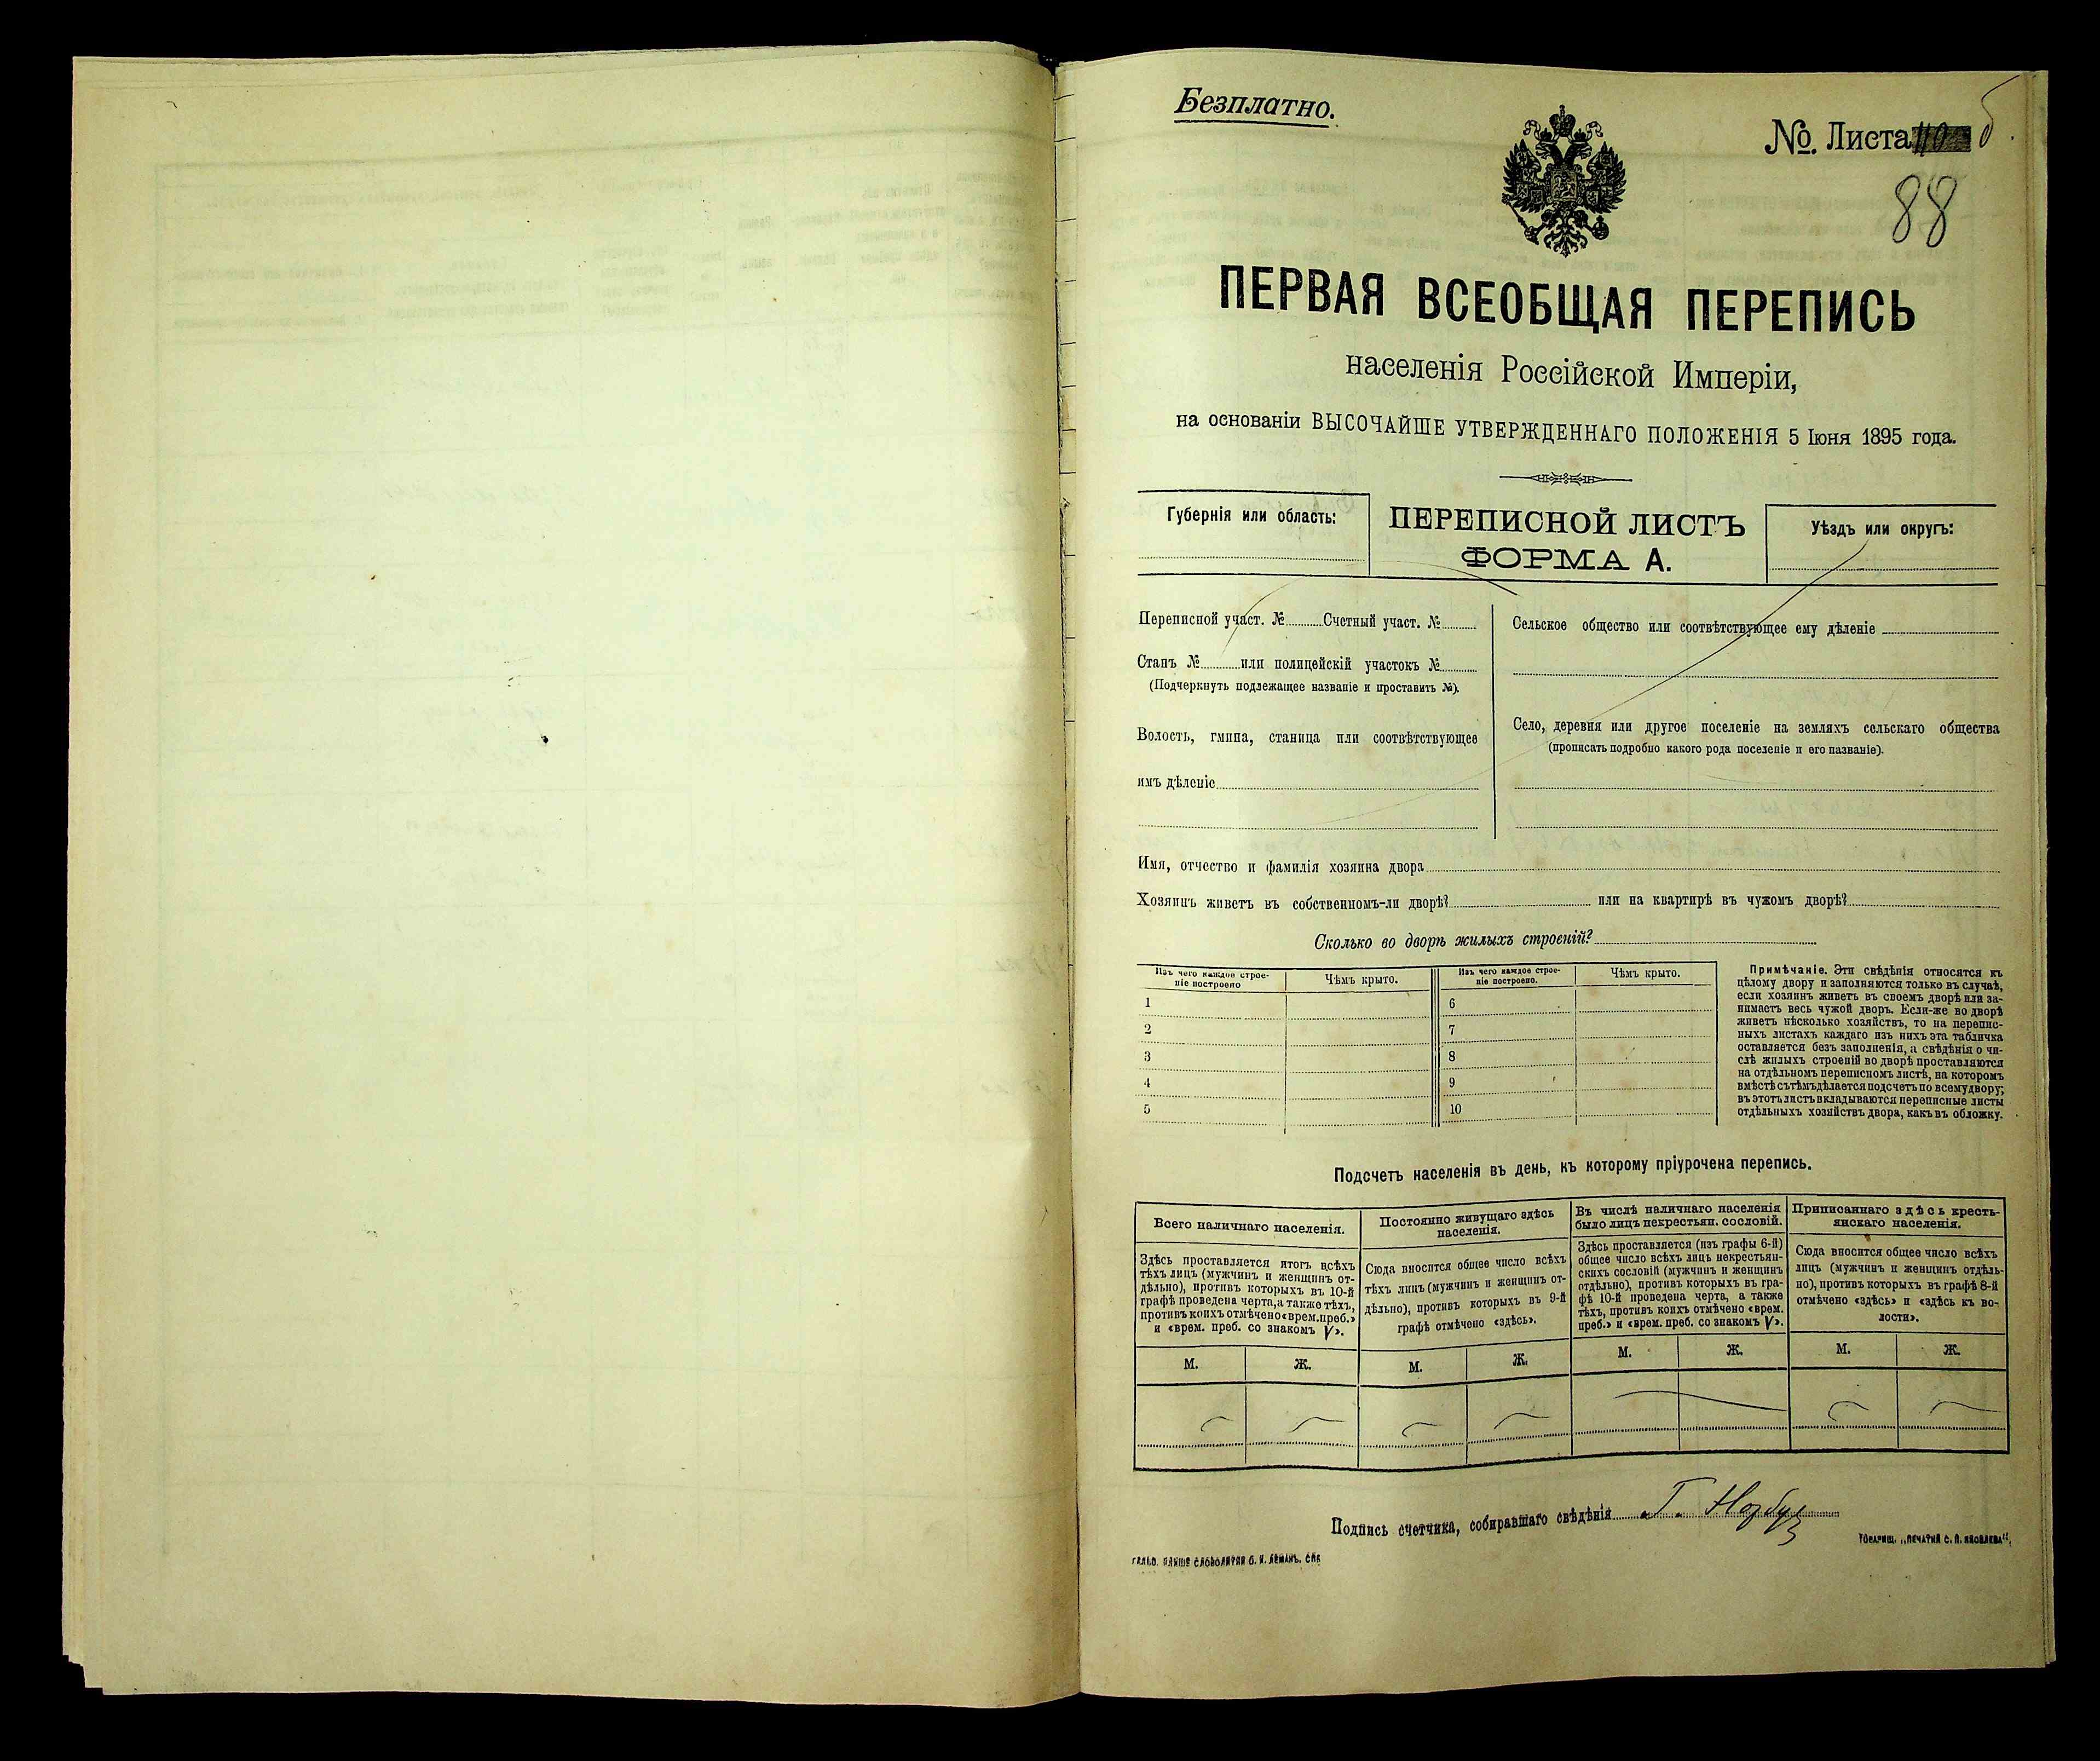 Безплатно.
№. Листа 110 б.
88
ПЕРВАЯ ВСЕОБЩАЯ ПЕРЕПИСЬ
населенія Россійской Имперіи,
на основаніи ВЫСОЧАЙШЕ УТВЕРЖДЕННАГО ПОЛОЖЕНІЯ 5 Іюня 1895 года.
Губернія или область:
ПЕРЕПИСНОЙ ЛИСТЪ
ФОРМА А.
Уѣздъ или округъ:
Переписной участ. № Счетный участ. №
Станъ № или полицейскій участокъ №
(Подчеркнуть подлежащее названіе и проставить №).
Волость, гмина, станица или соотвѣтствующее
имъ дѣленіе
Сельское общество или соотвѣтствующее ему дѣленіе
Село, деревня или другое поселеніе на земляхъ сельскаго общества
(прописать подробно какого рода поселеніе и его названіе).
Имя, отчество и фамилія хозяина двора
Хозяинъ живетъ въ собственномъ-ли дворѣ? или на квартирѣ въ чужомъ дворѣ?
Сколько во дворѣ жилыхъ строеній?
Изъ чего каждое строе-
ніе построено
Чѣмъ крыто.
Изъ чего каждое строе-
ніе построено.
Чѣмъ крыто.
1
2
3
4
5
6
7
8
9
10
Примѣчаніе. Эти свѣдѣнія относятся къ
цѣлому двору и заполняются только въ случаѣ,
если хозяинъ живетъ въ своемъ дворѣ или за-
нимаетъ весь чужой дворъ. Если-же во дворѣ
живетъ нѣсколько хозяйствъ, то на перепис-
ныхъ листахъ каждаго изъ нихъ эта табличка
оставляется безъ заполненія, а свѣдѣнія о чи-
слѣ жилыхъ строеній во дворѣ проставляются
на отдѣльномъ переписномъ листѣ, на которомъ
вмѣстѣ съ тѣмъ дѣлается подсчетъ по всему двору;
въ этотъ листъ вкладываются переписные листы
отдѣльныхъ хозяйствъ двора, какъ въ обложку.
Подсчетъ населенія въ день, къ которому пріурочена перепись.
Всего наличнаго населенія.
Здѣсь проставляется итогъ всѣхъ
тѣхъ лицъ (мужчинъ и женщинъ от-
дѣльно), противъ которыхъ въ 10-й
графѣ проведена черта, а также тѣхъ,
противъ коихъ отмѣчено «врем. преб.»
и «врем. преб. со знакомъ V».
Постоянно живущаго здѣсь
населенія.
Сюда вносится общее число всѣхъ
тѣхъ лицъ (мужчинъ и женщинъ от-
дѣльно), противъ которыхъ въ 9-й
графѣ отмѣчено «здѣсь».
Въ числѣ наличнаго населенія
было лицъ некрестьян. сословій.
Здѣсь проставляется (изъ графы 6-й)
общее число всѣхъ лицъ некрестьян-
скихъ сословій (мужчинъ и женщинъ
отдѣльно), противъ которыхъ въ гра-
фѣ 10-й проведена черта, а также
тѣхъ, противъ коихъ отмѣчено «врем.
преб.» и «врем. преб. со знакомъ V».
Приписаннаго здѣсь кресть-
янскаго населенія.
Сюда вносится общее число всѣхъ
лицъ (мужчинъ и женщинъ отдѣль-
но), противъ которыхъ въ графѣ 8-й
отмѣчено «здѣсь» и «здѣсь къ во-
лости».
М. Ж. М. Ж. М. Ж. М. Ж.
Подпись счетчика, собиравшаго свѣдѣнія Г.
ТОВАРИЩ. „ПЕЧАТНЯ С. П. ЯКОВЛЕВА",